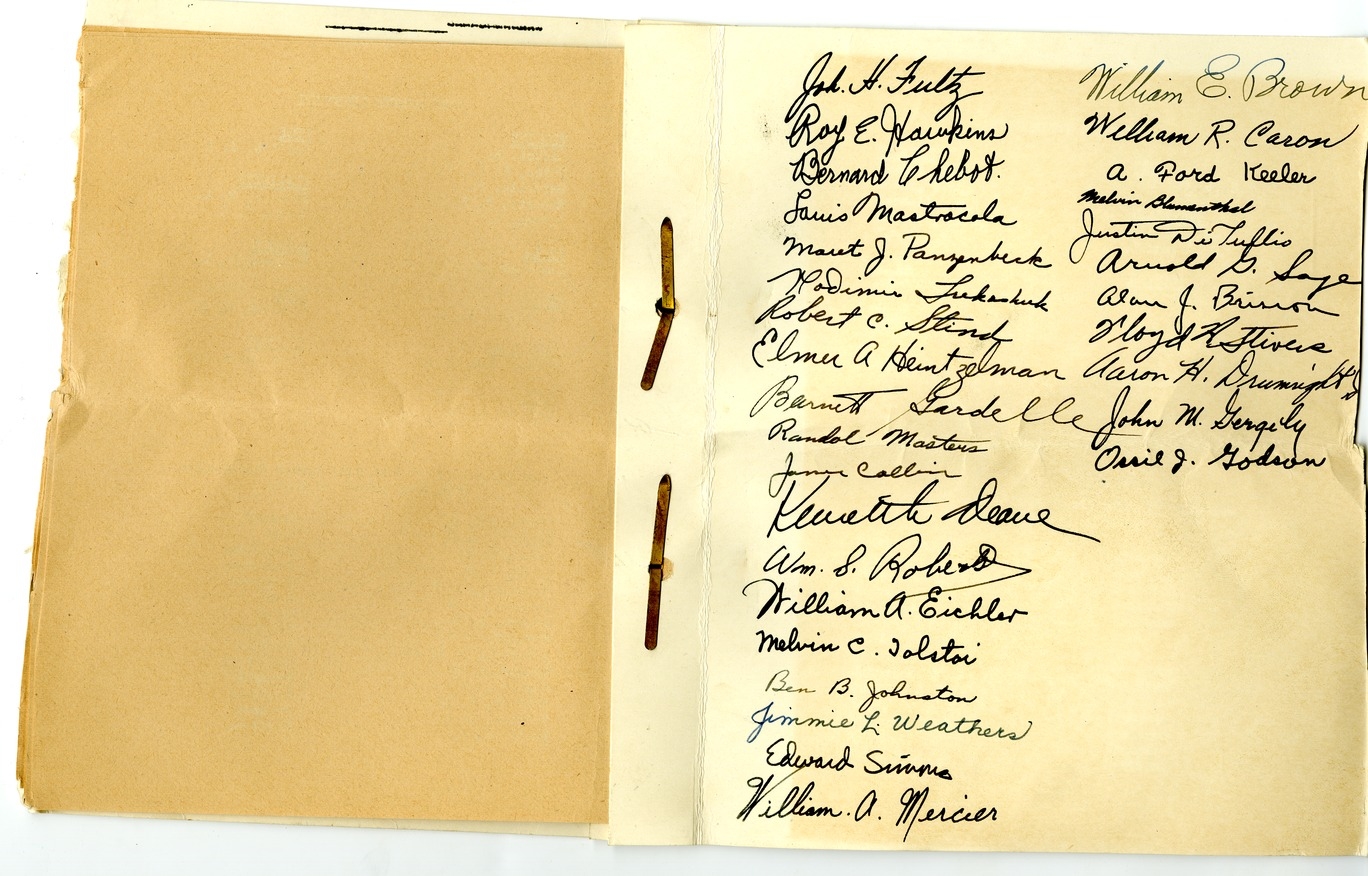 Joh. H. Fultz
Roy E. Hawkins
Bernard Chebot.
Louis Mastrocola
Maret J. Panzenbeck
Vlodimir Lukashuk
Robert C. Stind
Elmer A Heintzelman
Barnett Gardelle
Randol Masters
James Collin
Kenneth Deane
Wm. S. Roberts
William A. Eichler
Melvin C. Tolstoi
Ben B. Johnston
Jimmie L. Weathers
Edward Simms
William. A. Mercier
William E. Brown
William R. Caron
A. Ford Keeler
Melvin Blumenthal
Justin DiTullio
Arnold G. Sage
Alan J. Brisson
Floyd R Stivers
Aaron H. Drumright
John M. Gergely
Ossil J. Godson